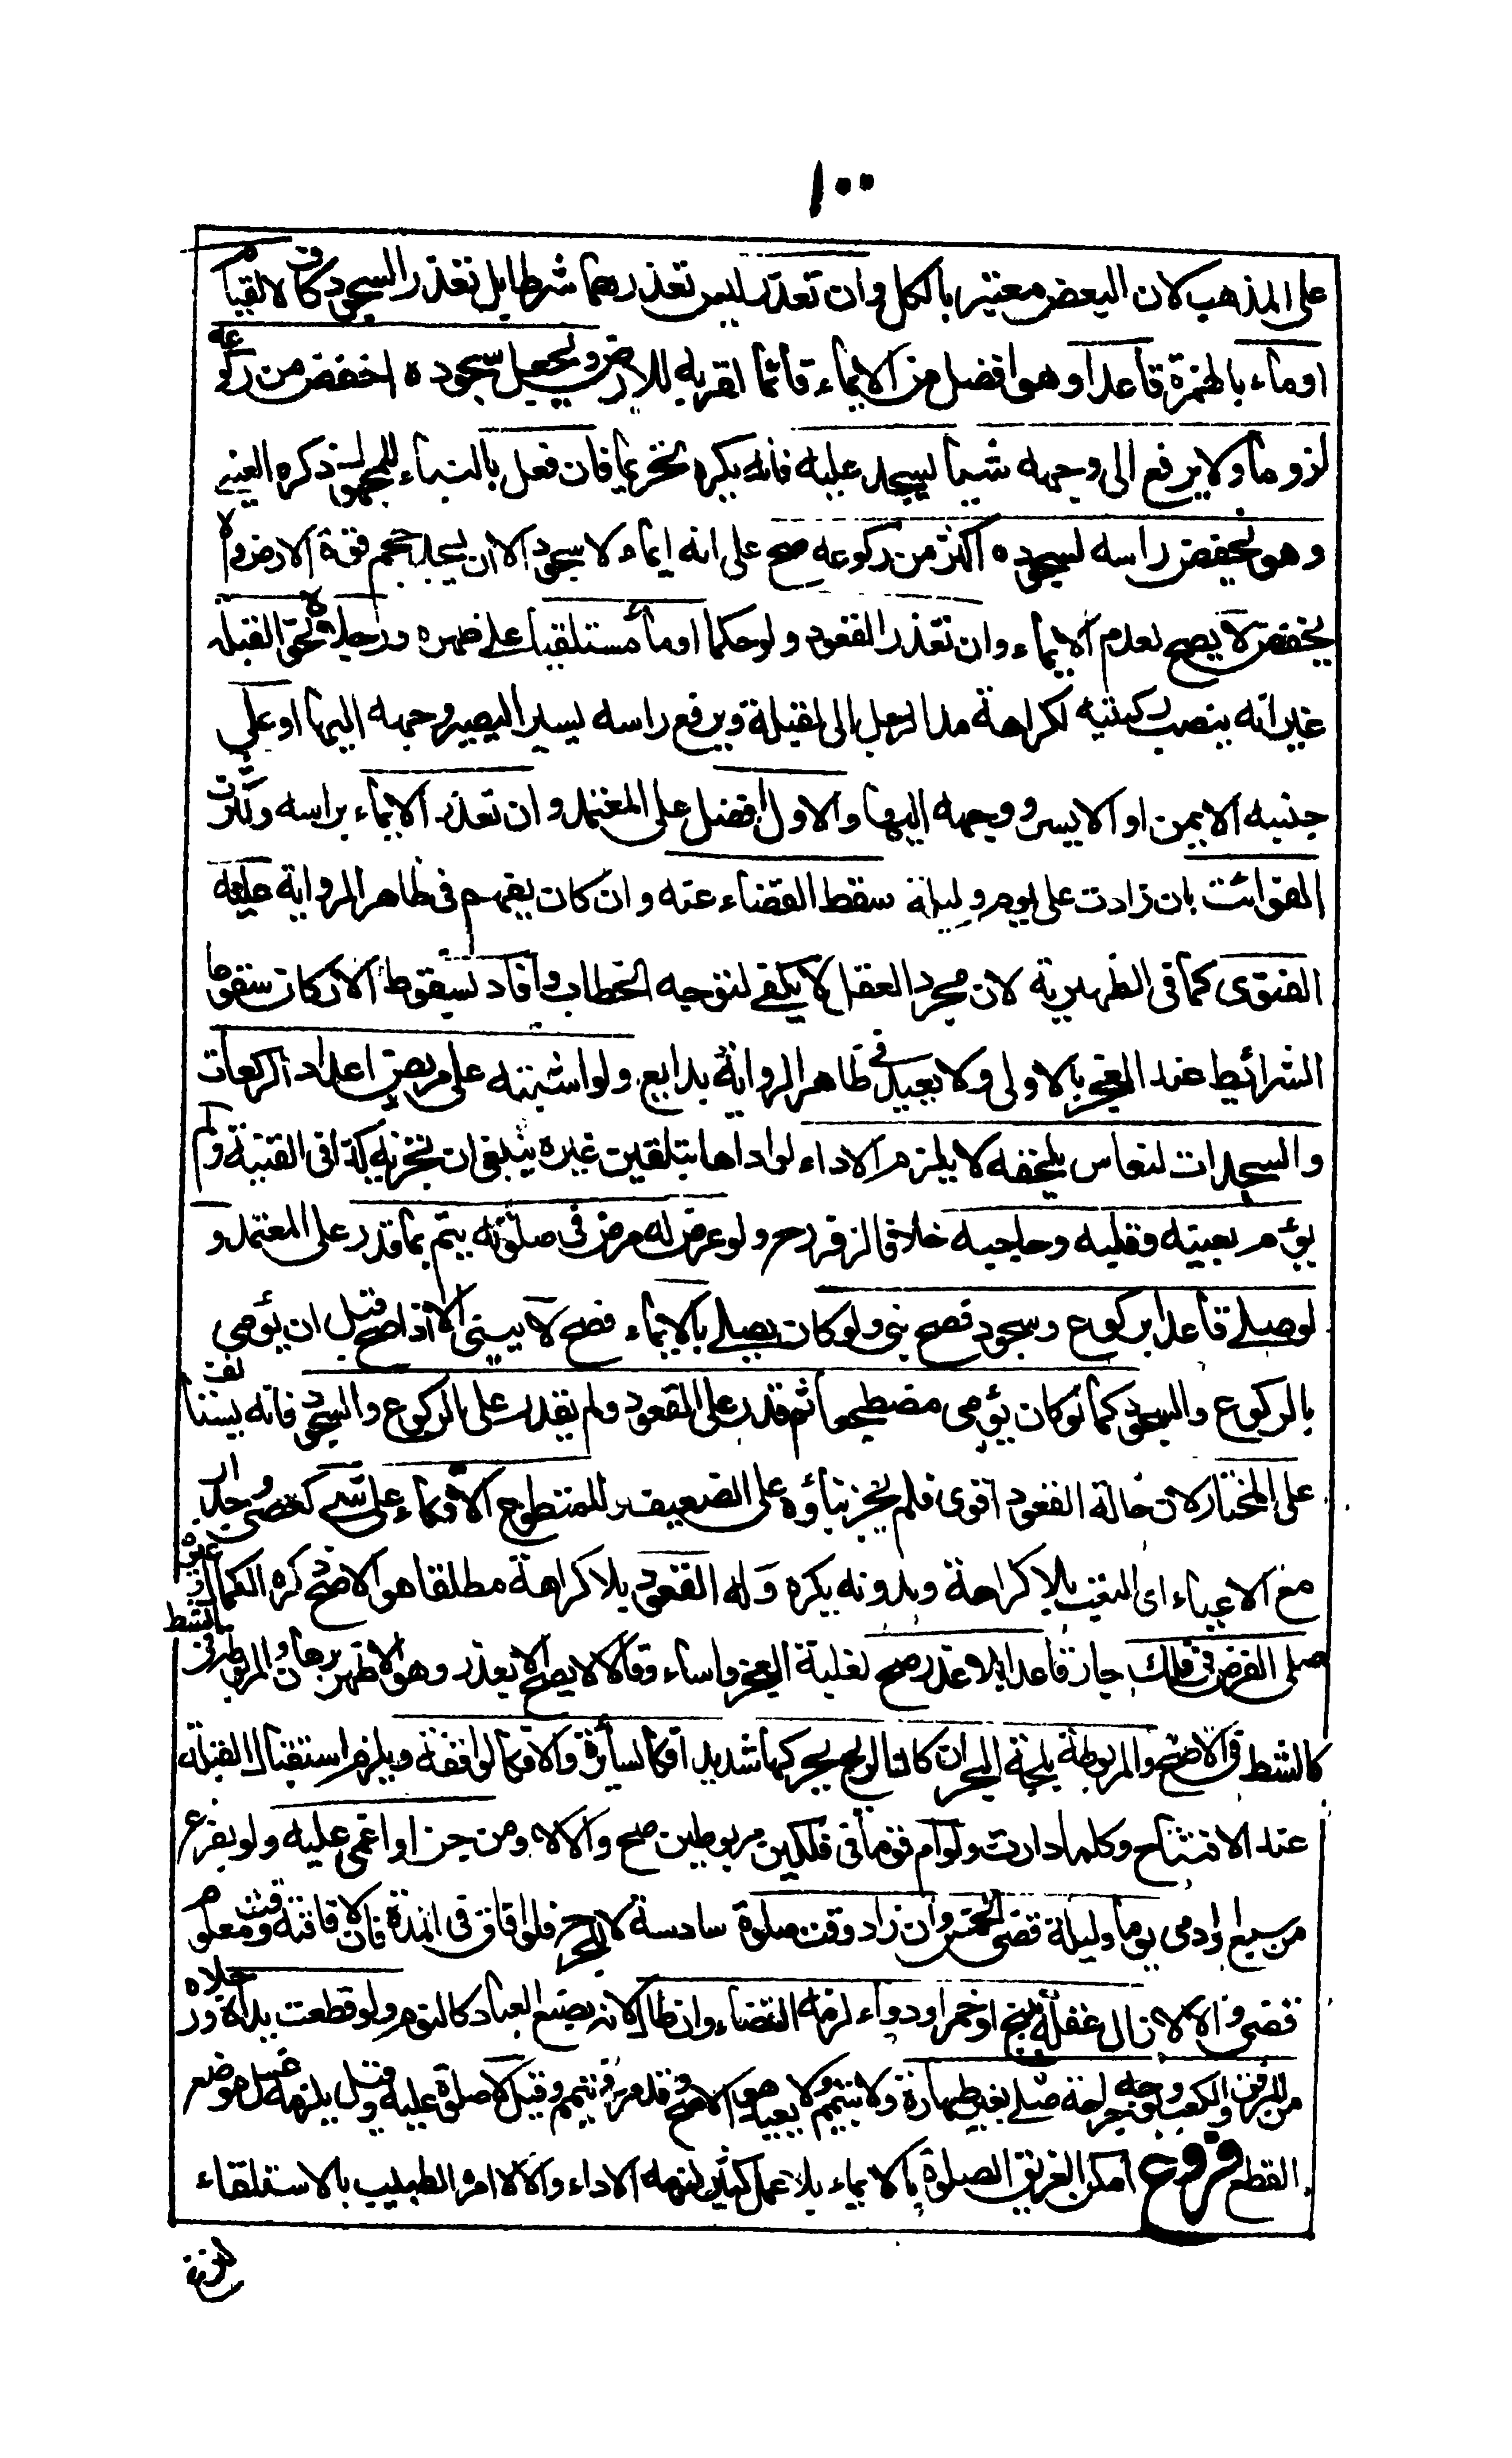 ١٠٠
على المذهب لان البعض معتبر بالكل وان تعذر ليس تعذرهما شرطا بل تعذر السجود كاف لا القيام
اوماء بالهمزة قاعدا وهو افضل من الايماء قائما لقربه للارض ويجعل سجوده اخفض من ركوعه
لزوما ولا يرفع الى وجهه شيأ ليسجد عليه فانه يكره تحريما فان فعل بالبناء للمجهول ذكره العيني
وهو يخفض راسه لسجوده اكثر من ركوعه صح على انه ايماء لا سجود الا ان يجد حجم قوة الارض والا
يخفض لا يصح لعدم الايماء وان تعذر القعود ولو حكما اومأ مستلقيا على ظهره ورجلاه نحو القبلة
غير انه ينصب ركبتيه لكراهة مد الرجل الى القبلة ويرفع راسه يسيرا ليصير وجهه اليها او على
جنبه الايمن او الايسر ووجهه اليها والاول افضل على المعتمد وان تعذر الايماء براسه وكثرت
الفوائت بان زادت على يوم وليلة سقط القضاء عنه وان كان يفهم في ظاهر الرواية عليه
الفتوى كما في الظهيرية لان مجرد العقل لا يكفي لتوجه الخطاب وافاد بسقوط الاركان سقوط
الشرائط عند العجز بالاولى ولا يعيد في ظاهر الرواية بدايع ولو اشتبه على مريض اعداد الركعات
والسجدات لنعاس يلحقه لا يلزم الاداء لو اداها بتلقين غيره ينبغي ان يجزيه كذا في القنية ولم
يؤم بعينه وقلبه وحاجبه خلافا لزفر رح ولو عرض له مرض في صلوته يتم بما قدر على المعتمد و
لو صلى قاعدا بركوع وسجود فصح بنى ولو كان يصلي بالايماء فصح لا يبني الا اذا صح قبل ان يؤمي
بالركوع والسجود كما لو كان يؤمي مضطجعا ثم قدر على القعود ولم يقدر على الركوع والسجود فانه يستانف
على المختار لان حالة القعود اقوى فلم يجز بناؤه على الضعيف وللمتطوع الاتكاء على شي كعصى وجدار
مع الاعياء اى التعب بلا كراهة وبدونه يكره وله القعود بلا كراهة مطلقا هو الاصح ذكره الكمال وغيره
صلى الفرض في فلك جار قاعدا بلا عذر صح لغلبة العجز واساء وقالا لا يصح الا بعذر وهو الاظهر برهان والمربوطة في بالشط
كالشط في الاصح والمربوطة بلجة البحر ان كانت الريح يحركها شديدا فكالسائرة والا فكالواقفة ويلزم استقبال القبلة
عند الافتتاح وكلما دارت ولو ام قوما في فلكين مربوطين صح والا لا ومن جن او اغمي عليه ولو بفزع
من سبع او ادمي يوما وليلة قضى الخمس وان زاد وقت صلوة سادسة لا للحرج فلو افاق في المدة فان لافاقته وقت معلوم
قضى والا لا زال عقله ببنج او خمر او دواء لزمه القضاء وان طال لانه بصنع العباد كالنوم ولو قطعت يداه ورجلاه
من المرفق والكعب وبوجهه جراحة صلى بغير طهارة ولا تيمم ولا يعيد هو الاصح وقد مر في التيمم وقيل لا صلوة عليه وقيل يلزمه غسل موضع
القطع فروع امكن الغريق الصلوة بالايماء بلا عمل كثير لزمه الاداء والا لا امره الطبيب بالاستلقاء